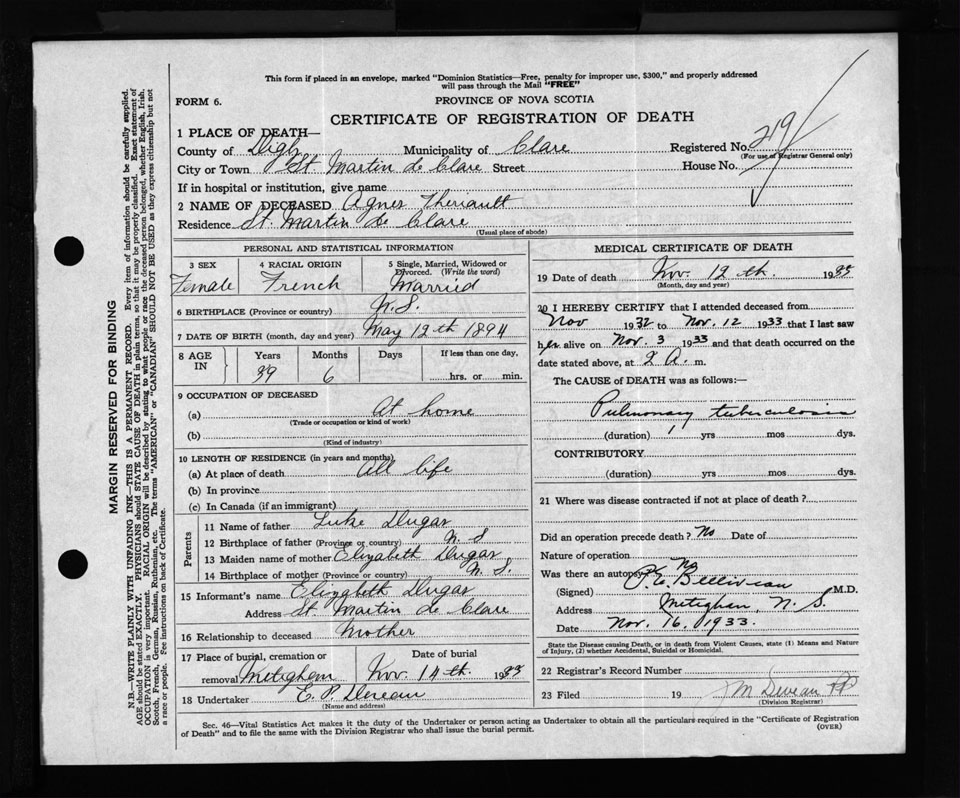 This form if placed in an envelope, marked "Dominion Statistics—Free, penalty for improper use, $300," and properly addressed
will pass through the Mail "FREE"
FORM 6.
PROVINCE OF NOVA SCOTIA
CERTIFICATE OF REGISTRATION OF DEATH
1 PLACE OF DEATH—
County of Digby Municipality of Clare Registered No. 219
(For use of Registrar General only)
City or Town St. Martin de Clare Street House No.
If in hospital or institution, give name
2 NAME OF DECEASED Agnes Theriault
Residence St. Martin de Clare
(Usual place of abode)
PERSONAL AND STATISTICAL INFORMATION
3 SEX Female
4 RACIAL ORIGIN French
5 Single, Married, Widowed or
Divorced. (Write the word)
Married
6 BIRTHPLACE (Province or country) N.S.
7 DATE OF BIRTH (month, day and year) May 12th 1894
8 AGE IN Years 39 Months 6 Days If less than one day,
hrs. or min.
9 OCCUPATION OF DECEASED
(a) At home
(Trade or occupation or kind of work)
(b)
(Kind of industry)
10 LENGTH OF RESIDENCE (in years and months)
(a) At place of death all life
(b) In province
(c) In Canada (if an immigrant)
Parents
11 Name of father Luke Dugas
12 Birthplace of father (Province or country) N. S
13 Maiden name of mother Elizabeth Dugas
14 Birthplace of mother (Province or country) N. S.
15 Informant's name Elizabeth Dugas
Address St. Martin de Clare
16 Relationship to deceased Mother
17 Place of burial, cremation or
removal Meteghan
Date of burial
Nov. 14th. 1933
18 Undertaker E. P. Deveau
(Name and address)
MEDICAL CERTIFICATE OF DEATH
19 Date of death Nov. 12th. 1933
(Month, day and year)
20 I HEREBY CERTIFY that I attended deceased from
Nov 1932 to Nov. 12 1933 that I last saw
her alive on Nov. 3 1933 and that death occurred on the
date stated above, at 2 A. m.
The CAUSE of DEATH was as follows:—
Pulmonary tuberculosis
(duration) 1 yrs mos dys.
CONTRIBUTORY
(duration) yrs mos dys.
21 Where was disease contracted if not at place of death?
Did an operation precede death? No Date of
Nature of operation
Was there an autopsy? No
(Signed) P. E. Belliveau M.D.
Address Meteghan, N. S.
Date Nov. 16. 1933.
State the Disease causing Death, or in death from Violent Causes, state (1) Means and Nature
of Injury, (2) whether Accidental, Suicidal or Homicidal.
22 Registrar's Record Number
23 Filed 19 J M Deveau
(Division Registrar)
Sec. 46—Vital Statistics Act makes it the duty of the Undertaker or person acting as Undertaker to obtain all the particulars required in the "Certificate of Registration
of Death" and to file the same with the Division Registrar who shall issue the burial permit. (OVER)
MARGIN RESERVED FOR BINDING
N.B.—WRITE PLAINLY WITH UNFADING INK—THIS IS A PERMANENT RECORD. Every item of information should be carefully supplied.
AGE should be stated EXACTLY. PHYSICIANS should STATE CAUSE OF DEATH in plain terms, so that it may be properly classified. Exact statement of
OCCUPATION is very important. RACIAL ORIGIN will be described by stating to what people or race the deceased person belonged, whether English, Irish,
Scotch, French, German, Russian, Ruthenian, etc. The terms "AMERICAN" or "CANADIAN" SHOULD NOT BE USED as they express citizenship but not
a race or people. See instructions on back of Certificate.